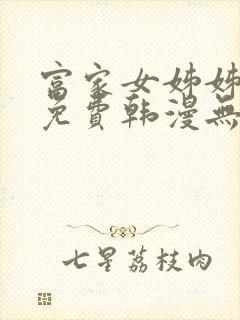 富家女姊姊
免費韩漫無
七星荔枝肉